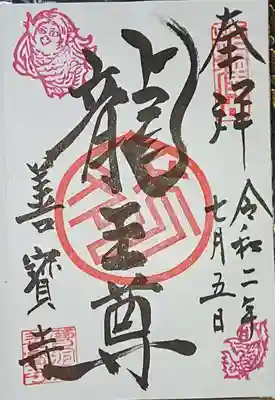 奉拝
令和二年
七月五日
龍王尊
善寳寺